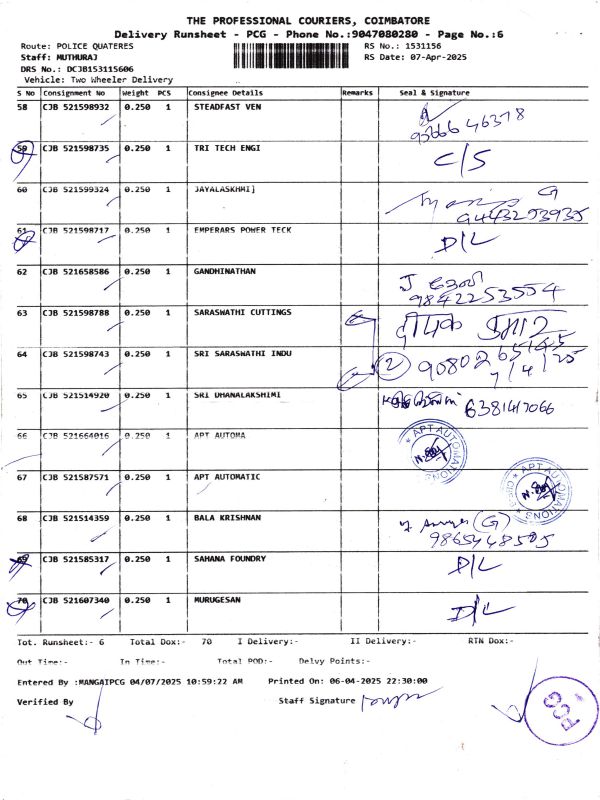 THE PROFESSIONAL COURIERS, COIMBATORE
Delivery Runsheet - PCG - Phone No.:9047080280 - Page No.:6
Route: POLICE QUATERES RS No.: 1531156
Staff: MUTHURAJ RS Date: 07-Apr-2025
DRS No.: DCJB153115606
Vehicle: Two Wheeler Delivery
S No Consignment No Weight PCS Consignee Details Remarks Seal & Signature
58 CJB 521598932 0.250 1 STEADFAST VEN
59 CJB 521598735 0.250 1 TRI TECH ENGI C/S
60 CJB 521599324 0.250 1 JAYALASKHMI]
9443253935
61 CJB 521598717 0.250 1 EMPERARS POWER TECK D/L
62 CJB 521658586 0.250 1 GANDHINATHAN
9842253554
63 CJB 521598788 0.250 1 SARASWATHI CUTTINGS दीपक कुमार
64 CJB 521598743 0.250 1 SRI SARASWATHI INDU 2 9080265145
7/4/25
65 CJB 521514920 0.250 1 SRI DHANALAKSHIMI 6381417066
66 CJB 521664016 0.250 1 APT AUTOMA APT AUTOMATIONS
67 CJB 521587571 0.250 1 APT AUTOMATIC APT AUTOMATIONS
68 CJB 521514359 0.250 1 BALA KRISHNAN
9865448505
69 CJB 521585317 0.250 1 SAHANA FOUNDRY D/L
70 CJB 521607340 0.250 1 MURUGESAN D/L
Tot. Runsheet:- 6 Total Dox:- 70 I Delivery:- II Delivery:- RTN Dox:-
Out Time:- In Time:- Total POD:- Delvy Points:-
Entered By :MANGAIPCG 04/07/2025 10:59:22 AM Printed On: 06-04-2025 22:30:00
Verified By Staff Signature
PCG